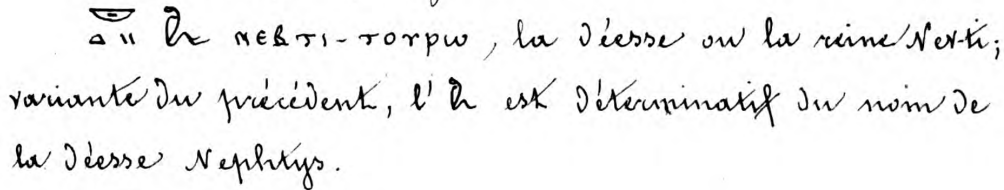 ⲛⲉⲃⲧⲓ-ⲧⲟⲩⲣⲱ, la déesse ou la reine Nev-ti;
variante du précédent, l' est déterminatif du nom de
la déesse Nephtys.